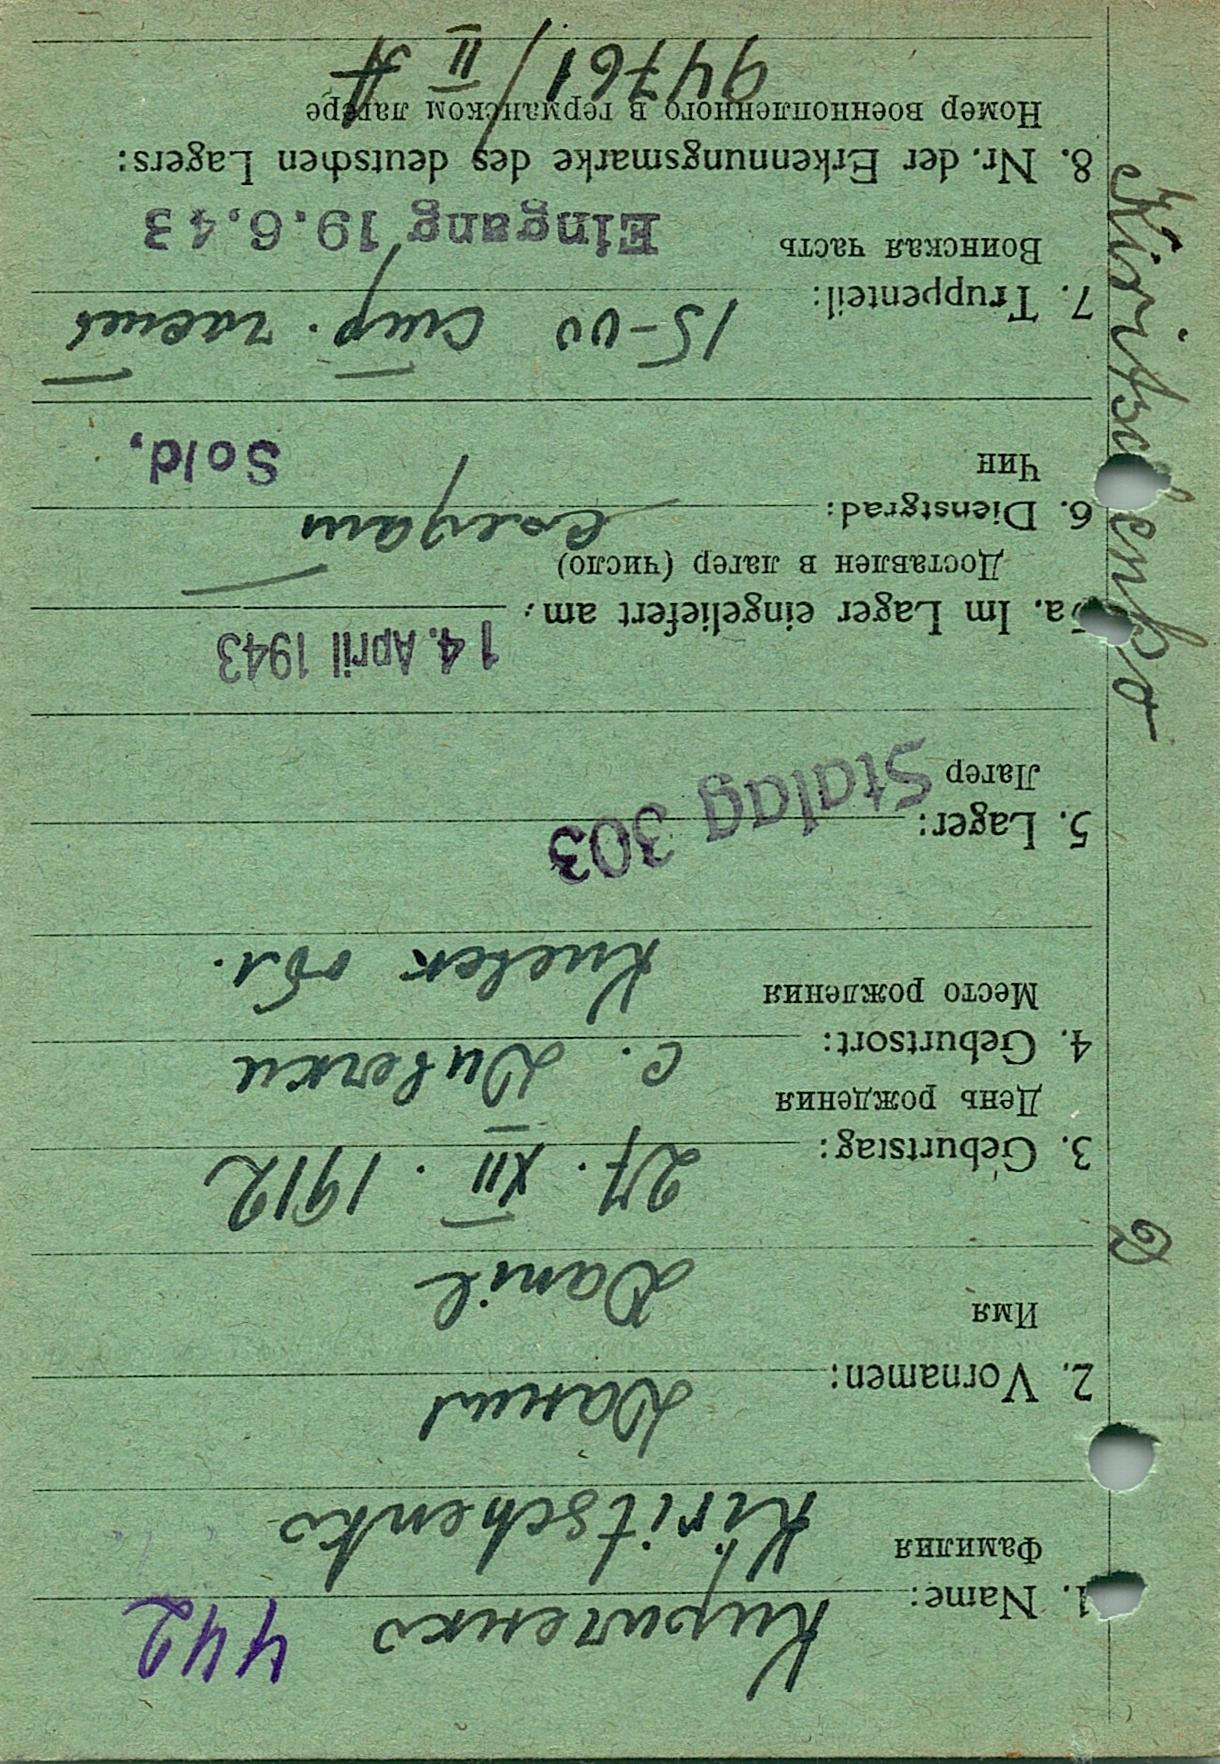 442
Кириченко
1. Name:
Фамилия
Kiritschenko
Данил
2. Vornamen:
Имя
Danil
27. XII. 1912
3. Geburtstag:
День рождения
с. Дивички
4. Geburtsort:
Место рождения
Киевск обл.
5. Lager:
Лагерь
Stalag 303
14. April 1943
5a. Im Lager eingeliefert am:
Доставлен в лагер (число)
солдат
6. Dienstgrad:
Чин
Sold.
15-00 стр.
7. Truppenteil:
Воинская часть
Eingang 19.6.43
8. Nr. der Erkennungsmarke des deutschen Lagers:
Номер военнопленного в германском лагере
94761/ II A
Kiritschenko
2